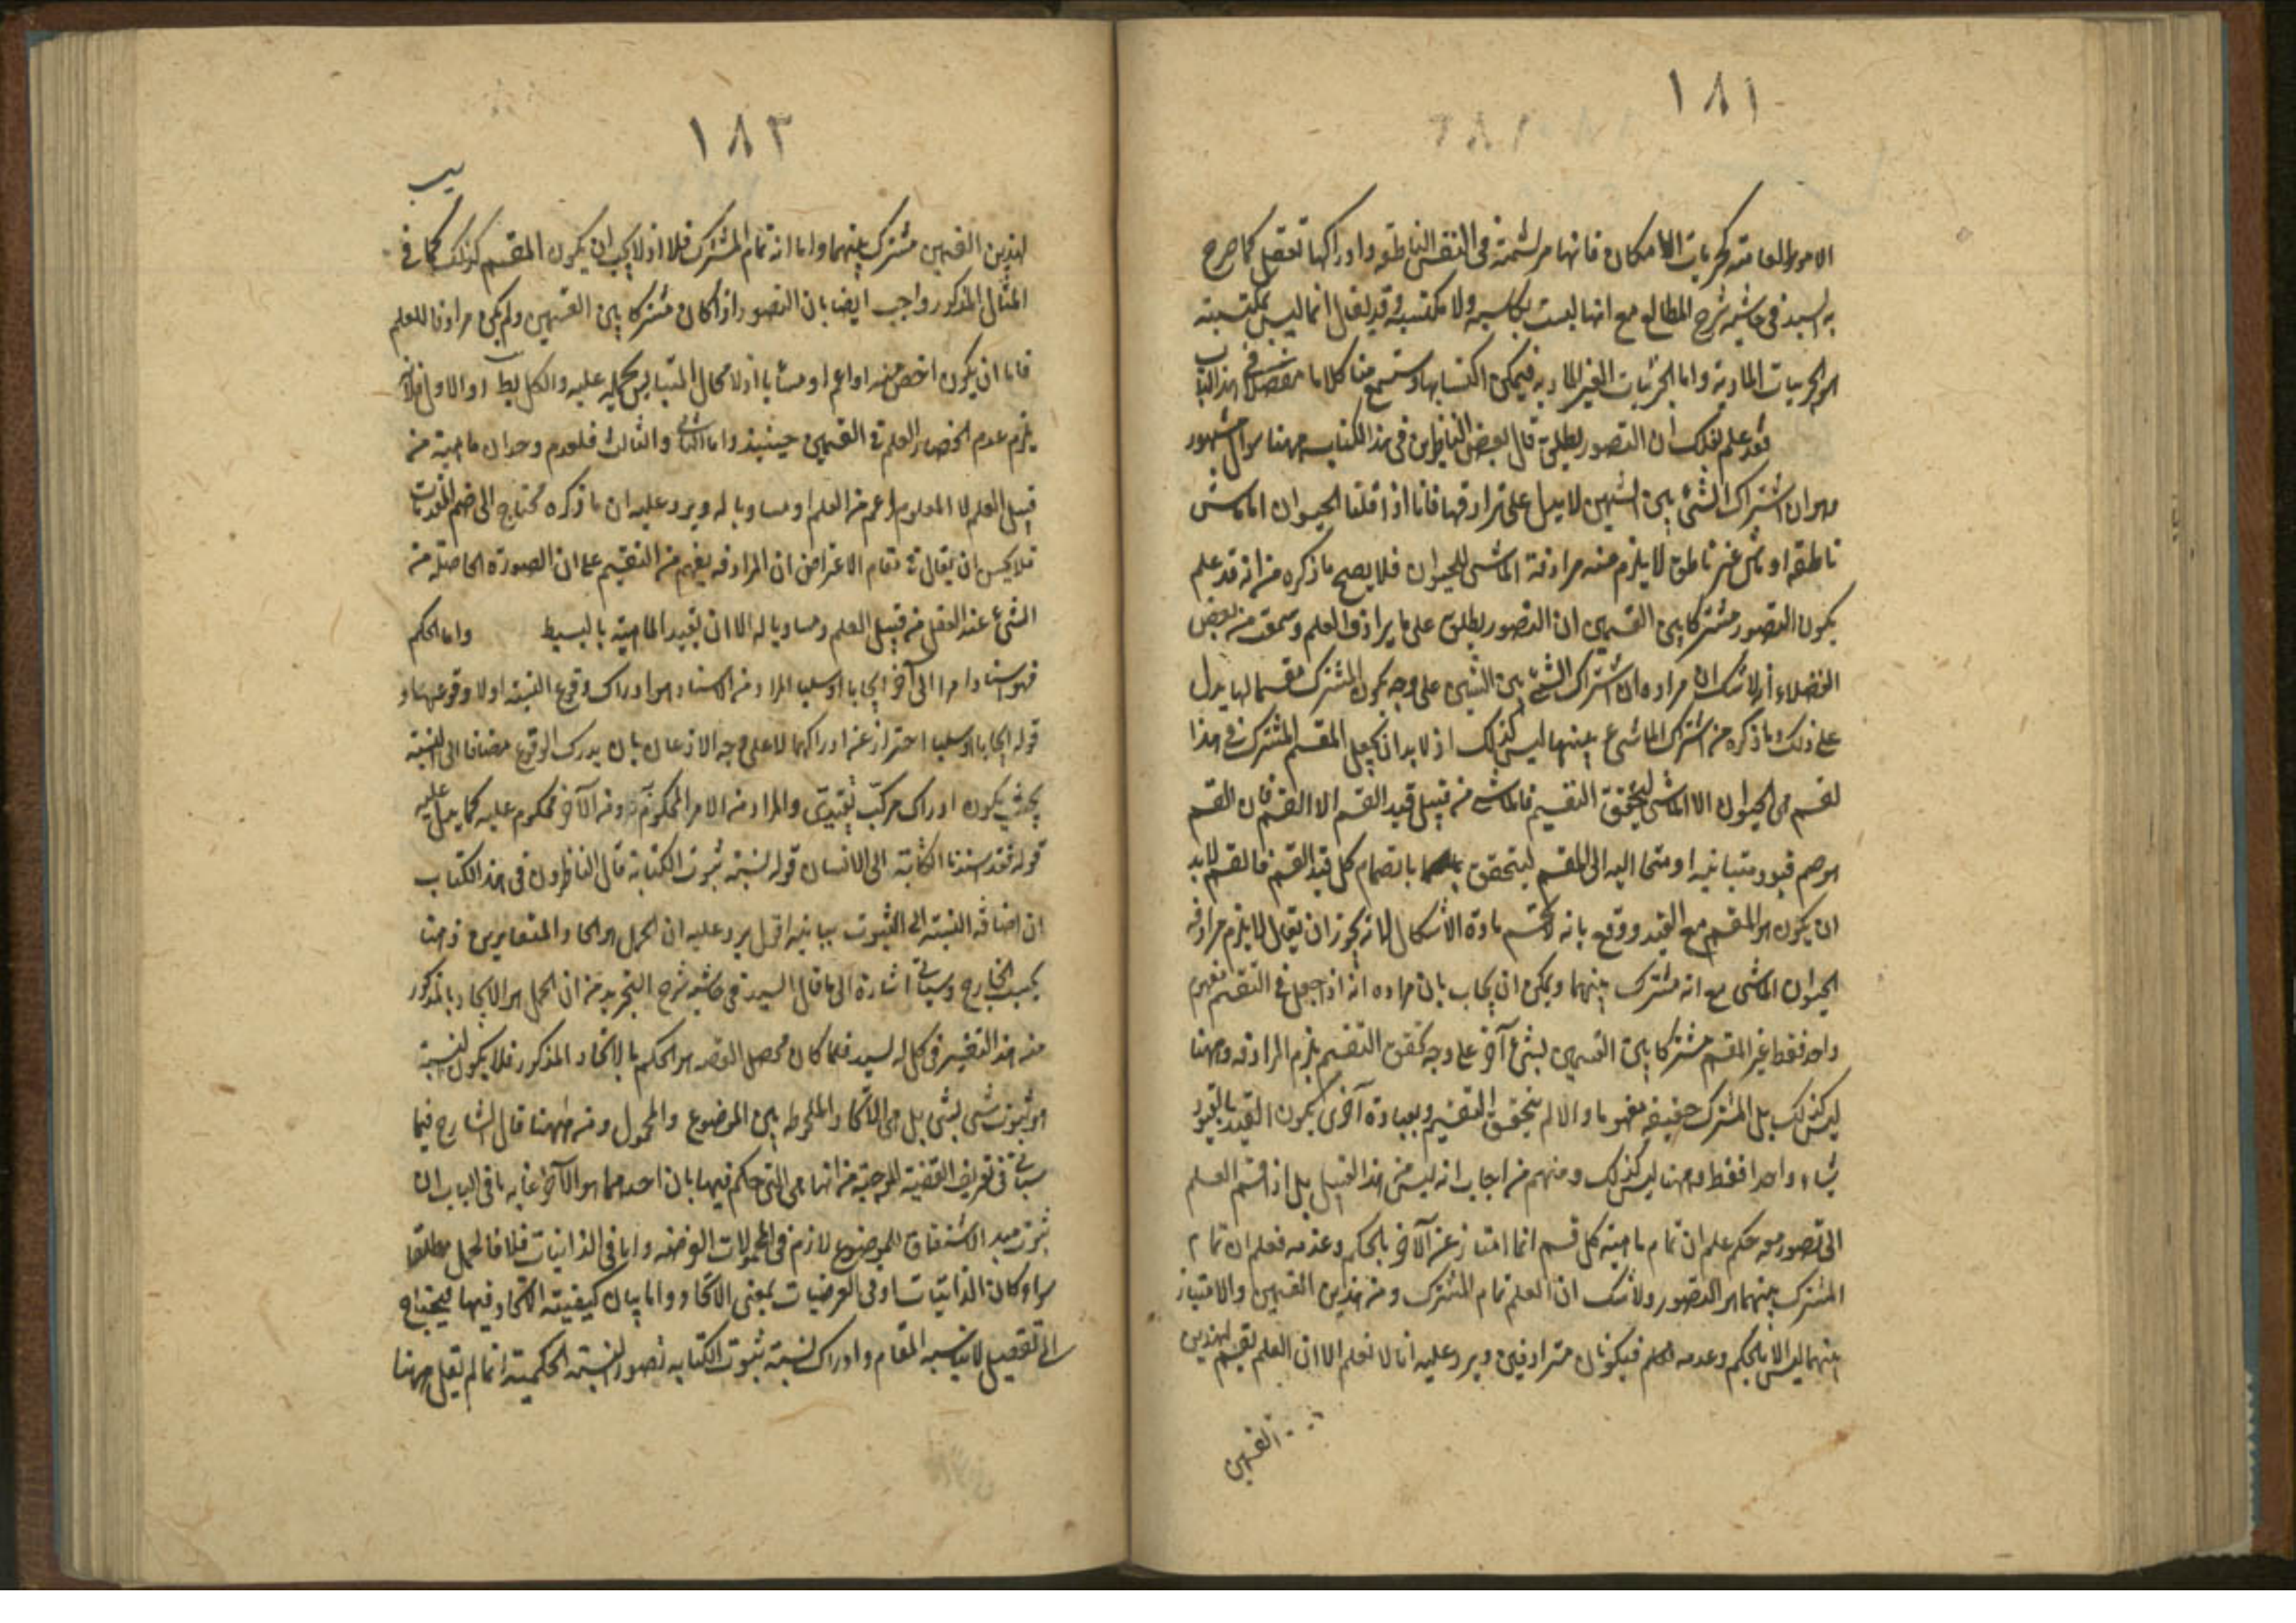 ١٨١
الامور العامة كجزئيات الامكان فانها مرتسمة فى النفس الناطقة وادراكها تعقل كما صرح
به السيد فى حاشية شرح المطالع مع انها ليست بكاسبة ولا مكتسبة وقد يقال انما ليس بمكتسبة
هو الجزئيات المادية واما الجزئيات الغير المادية فيمكن اكتسابها وستسمع منا كلاما مفصلا فى هذا الباب
قوله فقد علم بذلك ان التصور يطلق قال بعض الناظرين فى هذا الكتاب ههنا سوال مشهور
وهو ان اشتراك الشئ بين الشيئين لا يدل على ترادفها فانا اذا قلنا الحيوان اما ماش
ناطق او ماش غير ناطق لا يلزم منه مرادفة الماشى للحيوان فلا يصح ما ذكره من انه قد علم
بكون التصور مشتركا بين القسمين ان التصور يطلق على ما يرادف العلم وسمعت من بعض
الفضلاء ان لا شك ان مراده ان اشتراك الشئ بين الشيئين على وجه يكون المشترك مقسما لهما يدل
على ذلك وما ذكره من اشتراك الماشى بينهما ليس كذلك اذ لا بد ان يجعل المقسم المشترك فى هذا
القسم هى الحيوان الا الماشى ليتحقق التقسيم فالماشى من قبيل قيد القسم الا القسم فان القسم
هو ضم قيود متباينة او متخالفة الى المقسم ليتحقق بانضمام كل قيد القسم فالقسم لا بد
ان يكون هو المقسم مع القيد ووقع بانه لا يحسم مادة الاشكال لانه يجوز ان يقال لا يلزم مرادفة
الحيوان الماشى مع انه مشترك بينهما ويمكن ان يجاب بان مراده انه اذا جعل فى التقسيم مفهوم
واحد فقط غير المقسم مشتركا بين القسمين بشئ آخر على وجه تحقق التقسيم يلزم المرادفة وههنا
ليس كذلك بل المشترك حقيقة مفهوما والا لم يتحقق التقسيم وبعبارة آخرى يكون القيد بالقيود
شياء واحدا فقط وههنا ليس كذلك ومنهم من اجاب انه ليس من هذا القبيل بل اذا قسم العلم
الى تصور معه حكم علم ان تمام ماهية كل قسم انما امتاز عن الآخر بالحكم وعدمه فعلم ان تمام
المشترك بينهما هو التصور ولا شك ان العلم تمام المشترك ومن هذين القسمين والامتياز
بينهما ليس الا بالحكم وعدمه فيكونان مترادفين ويرد عليه انا لا نعلم الا ان العلم تقسيم لهذين
القسمين
١٨٣
لهذين القسمين مشترك بينهما واما انه تمام المشترك فلا اذ لا يجب ان يكون المقسم كذلك كما فى
المثال المذكور واجيب ايضا بان التصور اذا كان مشتركا بين القسمين ولم يكن مرادفا للعلم
فاما ان يكون اخص منه او اعم او مساويا اذ لا مجال للتباين لحمله عليه والكل بط اما الاول فلانه
يلزم عدم انحصار العلم فى القسمين حينئذ واما الثانى والثالث فلعدم وجدان ماهية من
قبيل العلم لا المعلوم اعم من العلم او مساويا له ويرد عليه ان ما ذكره محتاج الى ضم المقدمات
فلا يحسن ان يقال فى مقام الاعتراض ان المرادفة يفهم من التقسيم على ان الصورة الحاصلة من
الشئ عند العقل من قبيل العلم ومساويا له الا ان يقيد الماهية بالبسيط واما الحكم
فهو اسناد امر الى آخر ايجابا او سلبا المراد من الاسناد هو ادراك وقوع النسبة او لا وقوعها و
قوله ايجابا او سلبا احتراز عن ادراكهما لا على وجه الاذعان بان يدرك الوقوع مضافا الى النسبة
بحيث يكون ادراك مركب تقييدى والمراد من الامر المحكوم به ومن الآخر محكوم عليه كما يدل عليه
قوله فقد اسندنا الكتابة الى الانسان قوله نسبة ثبوت الكتابة قال الناظرون فى هذا الكتاب
ان اضافة النسبة الى الثبوت بيانية اقول يرد عليه ان الحمل هو اتحاد المتغايرين ذهنا
بحسب الخارج وسياتى اشارة الى ما قال السيد فى حاشية شرح التجريد من ان الحمل هو الاتحاد بالمذكور
منه هذا التفسير فى كل له لسيد فلما كان محصل القصد هو الحكم بالاتحاد المذكور فلا يكون النسبة
هو ثبوت شئ لشئ بل هى الاتحاد الملحوظ بين الموضوع والمحمول ومن ههنا قال الشارح فيما
سياتى فى تعريف القضية الموجبة من انها هى التى حكم فيها بان احدهما هو الآخر غاية ما فى الباب ان
ثبوت مبدء الاشتقاق للموضوع لازم فى المحمولات العرضية واما فى الذاتيات فلا فالحمل مطلقا
سواء كان فى الذاتيات او فى العرضيات بمعنى الاتحاد واما بيان كيفية الاتحاد فيها فيحتاج
الى تفصيل لا يناسبه المقام وادراك نسبة ثبوت الكتابة تصور النسبة الحكمية انما لم يقل ههنا